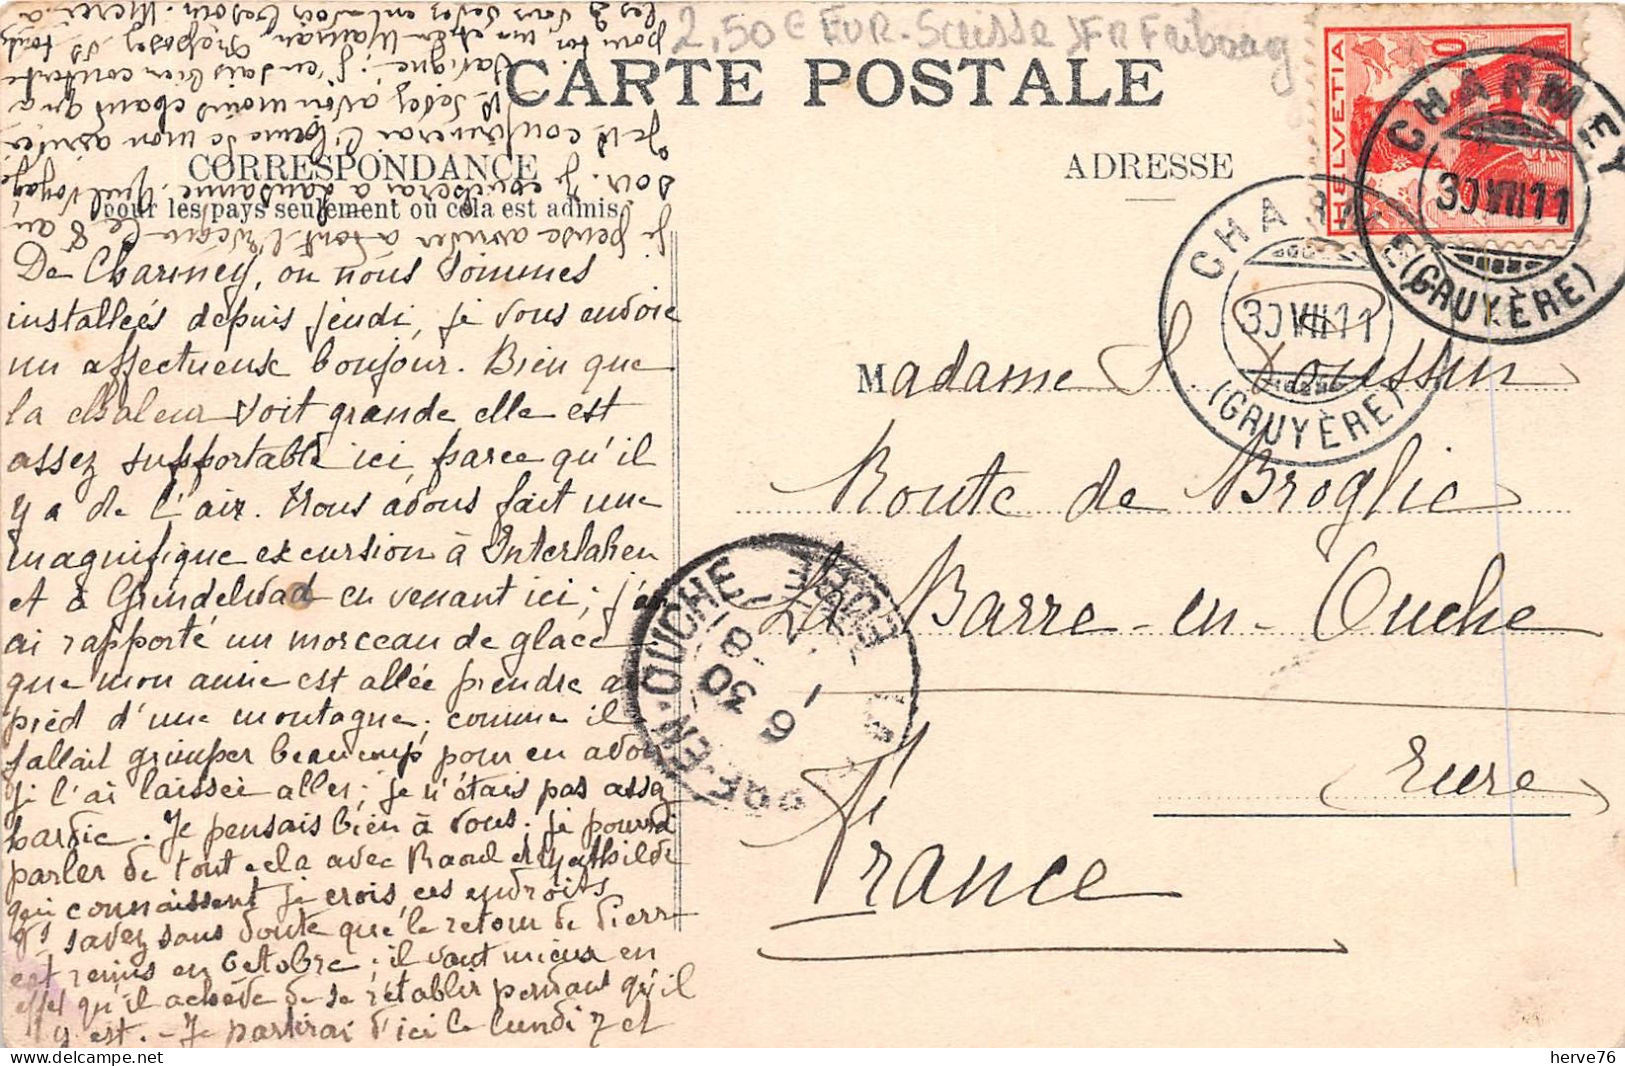 2,50 € EUR. Suisse )FR Fribourg
CARTE POSTALE
CORRESPONDANCE
pour les pays seulement où cela est admis.
ADRESSE
HELVETIA
10
CHARMEY
30 VII 11
(GRUYÈRE)
CHARMEY
30 VII 11
(GRUYÈRE)
De Charmey, ou nous sommes
installées depuis jeudi, je vous envoie
un affectueux bonjour. Bien que
la chaleur soit grande elle est
assez supportable ici parce qu'il
y a de l'air. Nous avons fait une
magnifique excursion à Interlaken
et à Grindelwad en venant ici ; j'en
ai rapporté un morceau de glace
que mon amie est allée prendre au
pied d'une montagne, comme il
fallait grimper beaucoup pour en avoir
je l'ai laissée aller ; je n'étais pas assez
hardie. Je pensais bien à vous. je pourrai
parler de tout cela avec Raoul et Mathilde
qui connaissent je crois ces endroits
Vs savez sans doute que le retour de Pierre
est remis en octobre ; il vaut mieux en
effet qu'il achève de se rétablir pendant qu'il
y est. - Je partirai d'ici le lundi 7 et
je pense arriver à Pont l'Evêque le 8 au
soir. Je coucherai à Lausanne. Quel voyage
Je te confirmerai l'heure de mon arrivée.
Madame S. Toussin
Route de Broglie
La Barre-en-Ouche
Eure
France
BARRE-EN-OUCHE
EURE
8 30
1